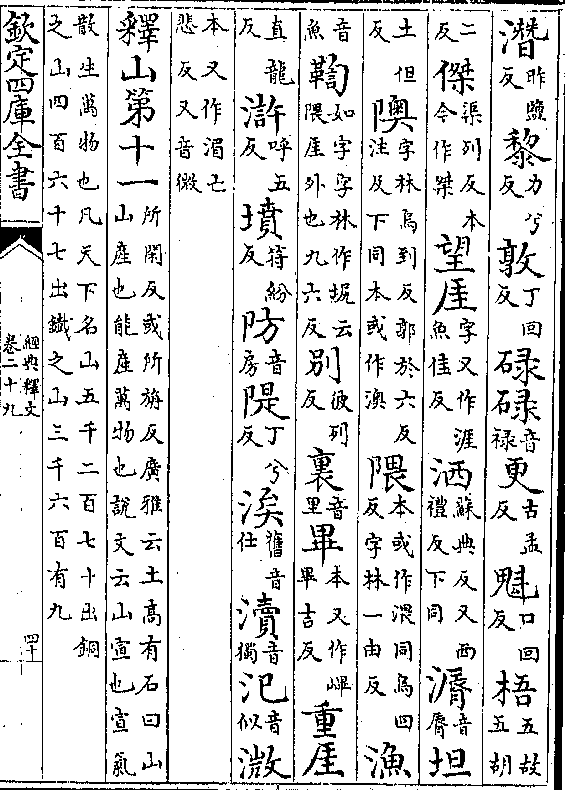 潛昨鹽反黎力兮反敦丁回反碌碌音祿更古孟反魁口回反梧五故五胡
二反傑渠列反本今作桀望厓字又作涯魚佳反洒蘇典反又西禮反下同漘音脣坦
土但反隩字林烏到反郭於六反注及下同本或作澳隈本或作渨同烏回反字林一由反漁
音魚鞫如字字林作云隈厓外也九六反別彼列反裏音里畢本又作畢吉反重厓
直龍反滸呼五反墳符紛反防音房隄丁兮反涘舊音仕瀆音獨汜音似溦
本又作湄亡悲反又音微
釋山第十一所閑反或所旃反廣雅云土高有石曰山山產也能產萬物也說文云山宣也宣氣
散生萬物也凡天下名山五千二百七十出銅之山四百六十七出鐵之山三千六百有九
欽定四庫全書
經典釋文
卷二十九
四十